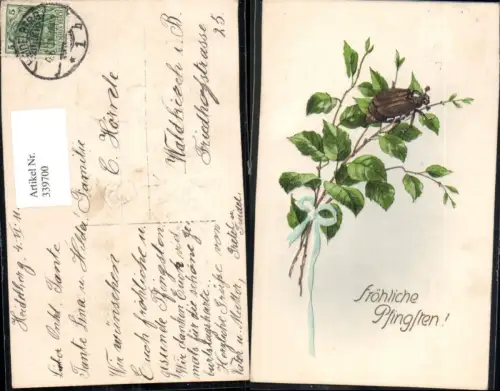 Artikel Nr.
339700
Familie
E. Hörrele
Waldkirch i. B.
Friedhofstrasse
25
Heidelberg 4. VI. 11.
Lieber Onkel, Tante
Tante Lina u. Hilda!
Wir wünschen
Euch fröhliche u.
gesunde Pfingsten.
Wir danken Euch noch
mals für die schöne Ge-
burtstagskarte.
Herzliche Grüße von
Vater u. Mutter,
Fröhliche
Pfingsten!